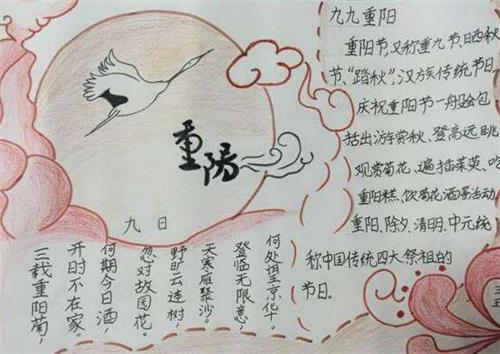 重阳
九日
三载重阳菊，
开时不在家。
何期今日酒，
忽对故园花。
野旷云连树，
天寒雁聚沙。
登临无限意，
何处望京华。
九九重阳
重阳节，又称重九节、晒秋
节、“踏秋”，汉族传统节日
庆祝重阳节一般会包
括出游赏秋、登高远眺
观赏菊花、遍插茱萸、吃
重阳糕、饮菊花酒等活动
重阳、除夕、清明、中元统
称中国传统四大祭祖的
节日。